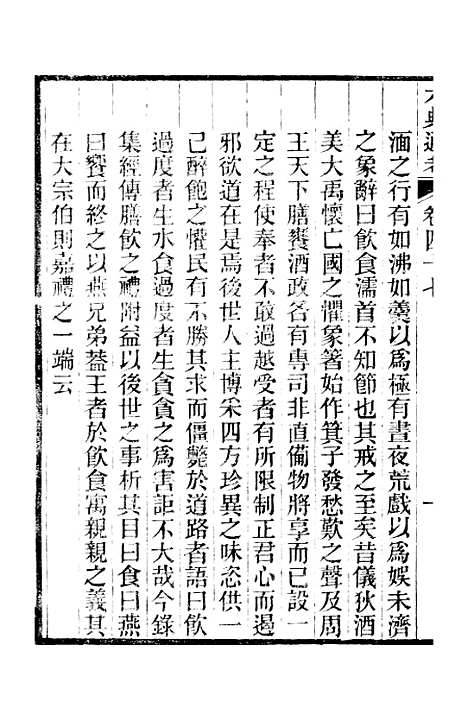 六典通考
卷四十七
一
湎之行有如沸如羹以爲極有晝夜荒戲以爲娛未濟
之象辭曰飲食濡首不知節也其戒之至矣昔儀狄酒
美大禹懷亡國之懼象箸始作箕子發愁歎之聲及周
王天下膳饗酒政各有專司非直備物將享而已設一
定之程使奉者不敢過越受者有所限制正君心而遏
邪欲道在是焉後世人主博采四方珍異之味恣供一
己醉飽之懽民有不勝其求而僵斃於道路者語曰飲
過度者生水食過度者生貪貪之爲害詎不大哉今錄
集經傳膳飲之禮附益以後世之事析其目曰食曰燕
曰饗而終之以燕兄弟葢王者於飲食寓親親之義其
在大宗伯則嘉禮之一端云